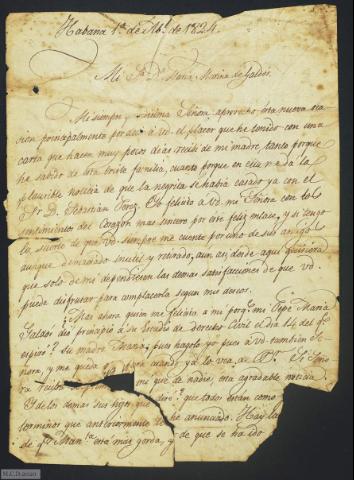 Habana 1º de Ag.to de 1824.
Mi S.ra D.a Maria Marina de Galdós.
Mi siempre y
Señora aprovecho esta nueva oca
sion principalmente por dar á vd. el placer que he tenido con una
carta que hacen muy pocos dias recibi de mi madre, tanto porque
he sabido de esta bonita familia, cuanto porque en ella me dá la
plausible noticia de que la negrita se habia casado ya con el
Sr. D. Sebastian Perez. Yo felicito á vd. mi Señora con to
sentimientos del Corazon mas sincero por este feliz enlace, y si tengo
la suerte de que vd. siempre me cuente por uno de sus amigos
aunque demasiado inutil y retirado, aun asi desde aqui quisiera
que solo de mi dependieran las demas satisfacciones de que vd.
puede disfrutar para complacerla segun mis deseos.
Mas ahora quien me felicita a mi porq.e mi Pepe Maria
Galdos dio principio a su Estudio de derecho Civil el dia 14 del q.e
espiró? Su madre Juana; pues hagolo yo pues á vd. tambien Se
ñora, y me queda
para cuando ya lo vea, de
que de nadie, esta agradable noticia
Y de los demas sus hijos que
que todos estan como
terminos que anteriormente he anunciado. Hay la
de q.e
esta mas gorda, y de que se ha ido
M.C. Duncan